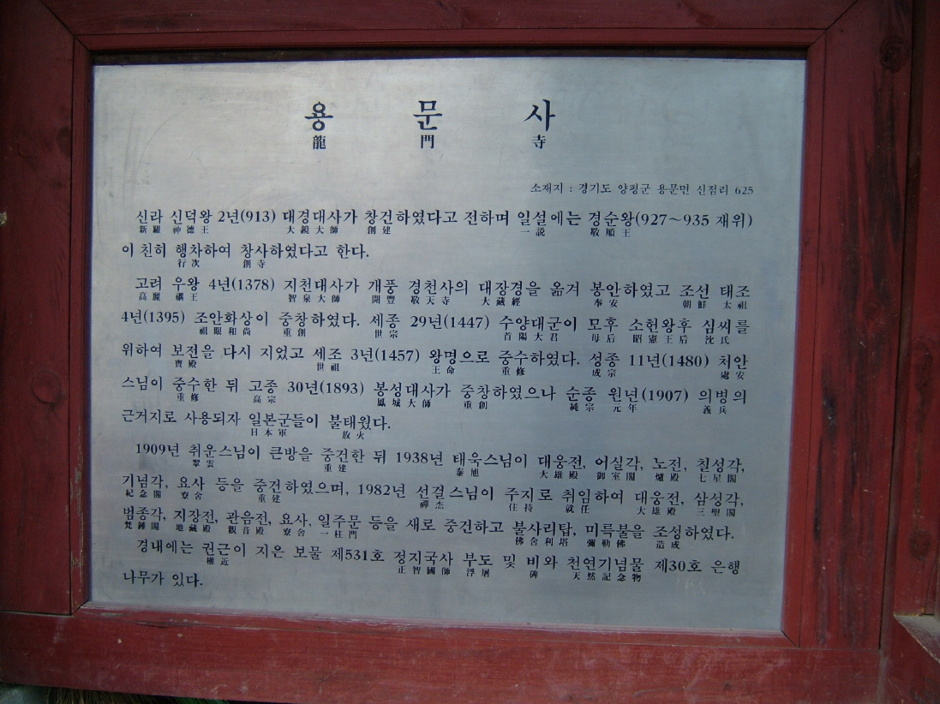 용문사
龍門寺
소재지 : 경기도 양평군 용문면 신점리 625
신라 신덕왕 2년(913) 대경대사가 창건하였다고 전하며 일설에는 경순왕(927~935 재위)
新羅 神德王 大鏡大師 創建 一説 敬順王
이 친히 행차하여 창사하였다고 한다.
行次 創寺
고려 우왕 4년(1378) 지천대사가 개풍 경천사의 대장경을 옮겨 봉안하였고 조선 태조
高麗 禑王 智泉大師 開豊 敬天寺 大藏經 奉安 朝鮮 太祖
4년(1395) 조안화상이 중창하였다. 세종 29년(1447) 수양대군이 모후 소헌왕후 심씨를
祖眼和尚 重創 世宗 首陽大君 母后 昭憲王后 沈氏
위하여 보전을 다시 지었고 세조 3년(1457) 왕명으로 중수하였다. 성종 11년(1480) 처안
寶殿 世祖 王命 重修 成宗 處安
스님이 중수한 뒤 고종 30년(1893) 봉성대사가 중창하였으나 순종 원년(1907) 의병의
重修 高宗 鳳城大師 重創 純宗 元年 義兵
근거지로 사용되자 일본군들이 불태웠다.
日本軍 放火
1909년 취운스님이 큰방을 중건한 뒤 1938년 태욱스님이 대웅전, 어실각, 노전, 칠성각,
翠雲 重建 泰旭 大雄殿 御室閣 爐殿 七星閣
기념각, 요사 등을 중건하였으며, 1982년 선걸스님이 주지로 취임하여 대웅전, 삼성각,
紀念閣 寮舍 重建 禪杰 住持 就任 大雄殿 三聖閣
범종각, 지장전, 관음전, 요사, 일주문 등을 새로 중건하고 불사리탑, 미륵불을 조성하였다.
梵鍾閣 地藏殿 觀音殿 寮舍 一柱門 佛舍利塔 彌勒佛 造成
경내에는 권근이 지은 보물 제531호 정지국사 부도 및 비와 천연기념물 제30호 은행
權近 正智國師 浮屠 碑 天然記念物
나무가 있다.